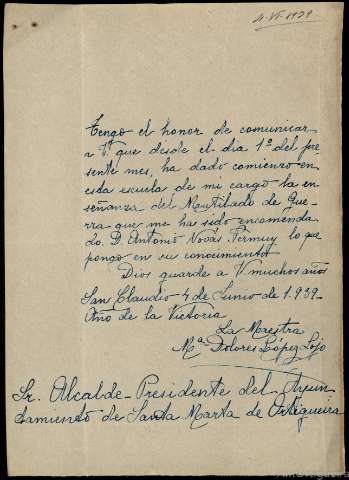 4-VI-1939
Tengo el honor de comunicar
a V. que desde el dia 1º del pre
sente mes, ha dado comienzo en
esta escuela de mi cargo la en
señanza del Mutilado de Gue
rra que me ha sido encomenda
do. D. Antonio Novas Fermuy lo que
pongo en su conocimiento
Dios guarde a V. muchos años
San Claudio 4 de Junio de 1.939.
Año de la Victoria
La Maestra
Mª Dolores López Lojo
Sr. Alcalde-Presidente del Ayun
tamiento de Santa Marta de Ortigueira